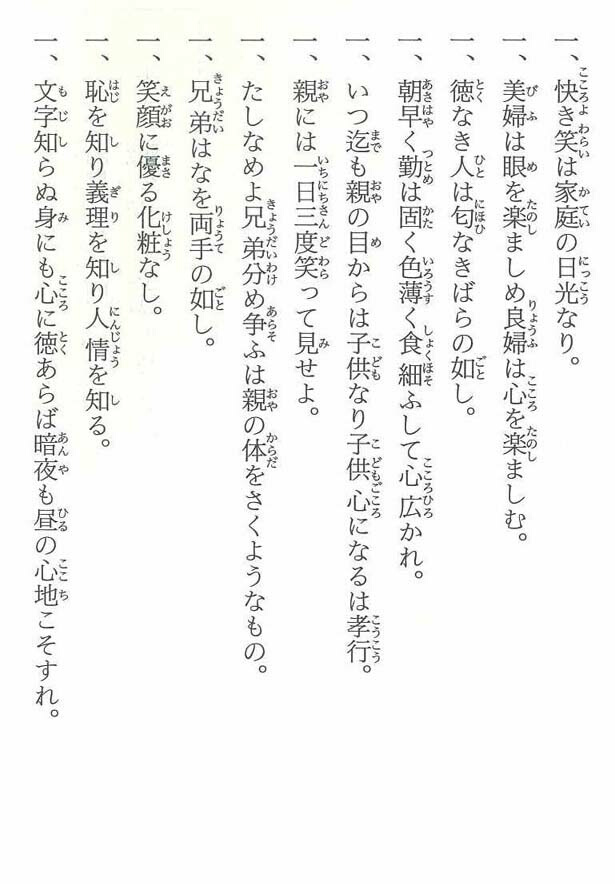 一、快き笑は家庭の日光なり。
一、美婦は眼を楽ましめ良婦は心を楽ましむ。
一、徳なき人は匂なきばらの如し。
一、朝早く勤は固く色薄く食細ふして心広かれ。
一、いつ迄も親の目からは子供なり子供心になるは孝行。
一、親には一日三度笑って見せよ。
一、たしなめよ兄弟分め争ふは親の体をさくようなもの。
一、兄弟はなを両手の如し。
一、笑顔に優る化粧なし。
一、恥を知り義理を知り人情を知る。
一、文字知らぬ身にも心に徳あらば暗夜も昼の心地こそすれ。